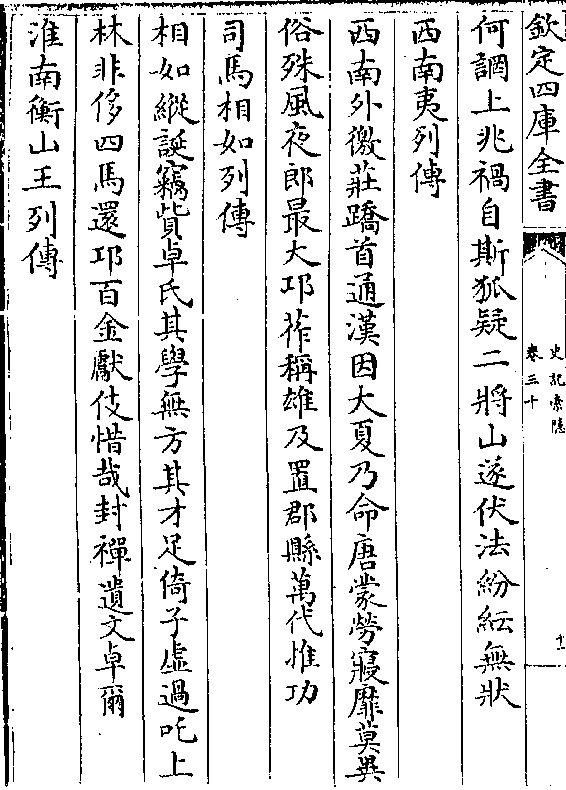 欽定四庫全書
史記索隱
卷三十
十
何調上兆禍自斯狐疑二將山遂伏法紛紜無狀
西南夷列傳
西南外徼莊蹻首通漢因大夏乃命唐蒙勞寢靡莫異
俗殊風夜郎最大邛筰稱雄及置郡縣萬代推功
司馬相如列傳
相如縱誕竊貲卓氏其學無方其才足倚子虛過吒上
林非侈四馬還邛百金獻伎惜哉封禪遺文卓爾
淮南衡山王列傳